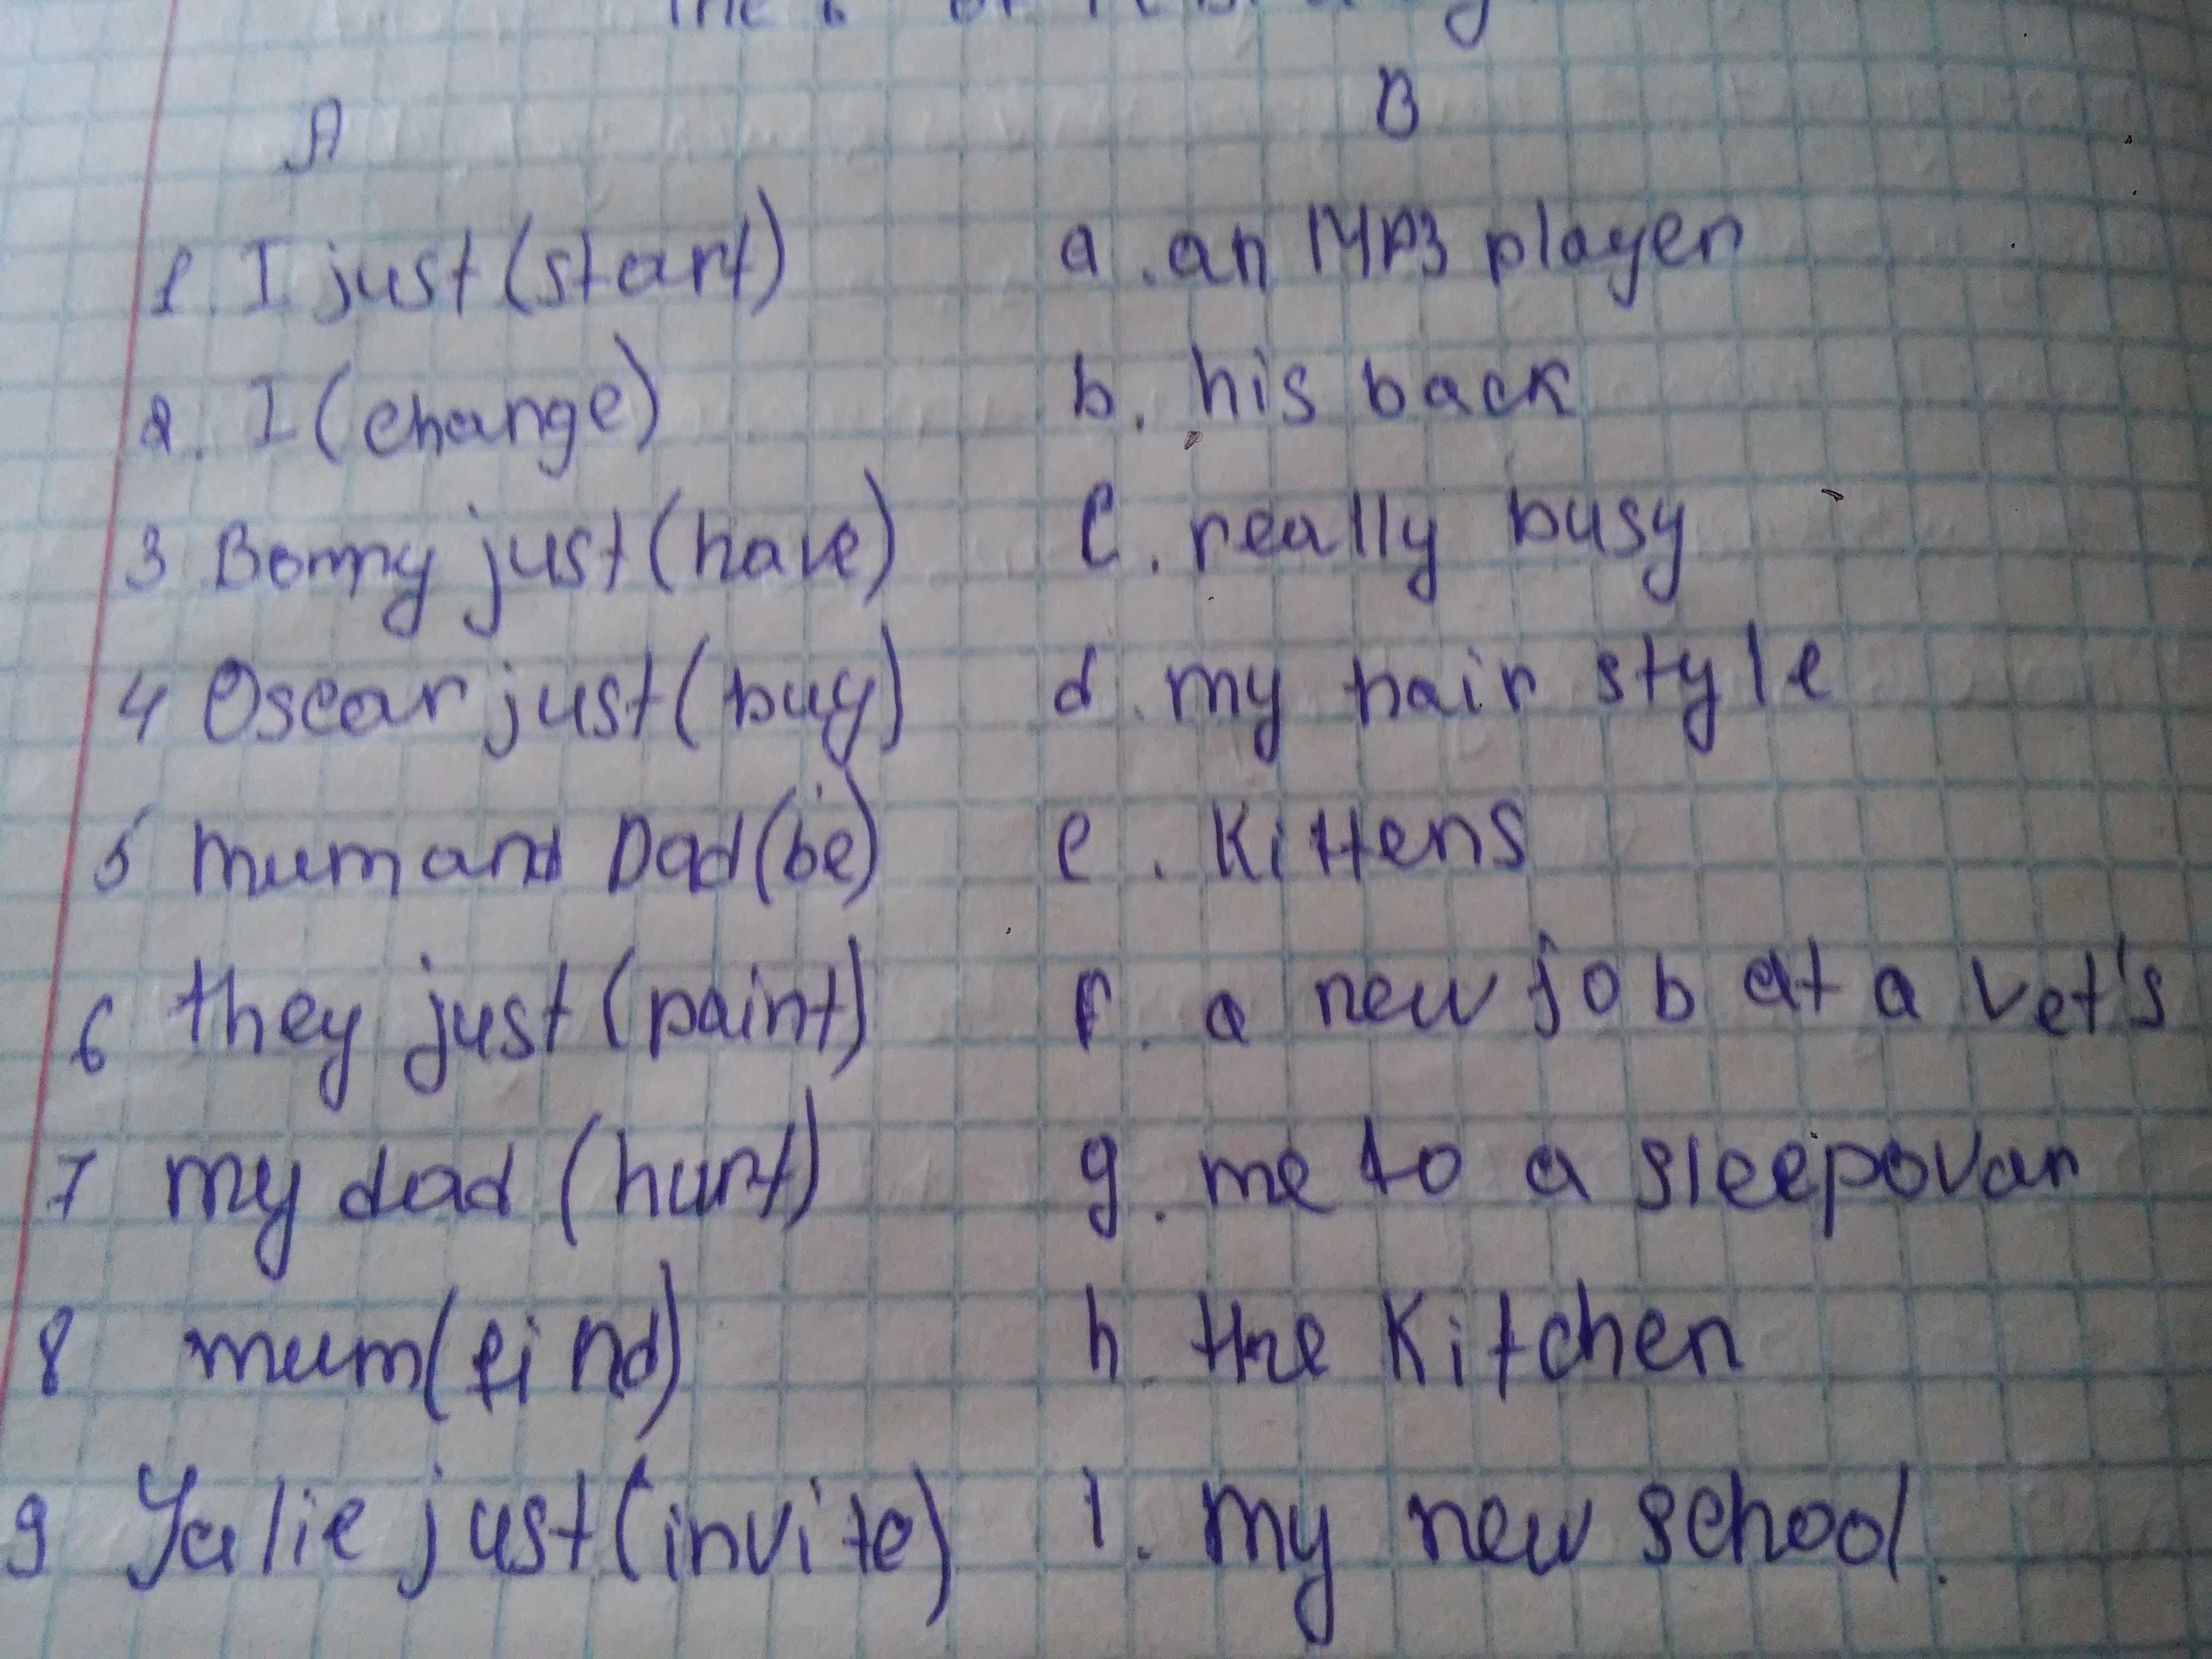 A B
1. I just (start) a. an MP3 player
2. I (change) b. his back
3 Bonny just (have) c. really busy
4 Oscar just (buy) d. my hair style
5 mum and Dad (be) e. kittens
6 they just (paint) f. a new job at a vet's
7 my dad (hurt) g. me to a sleepovar
8 mum (find) h. the kitchen
9 Julie just (invite) i. my new school.